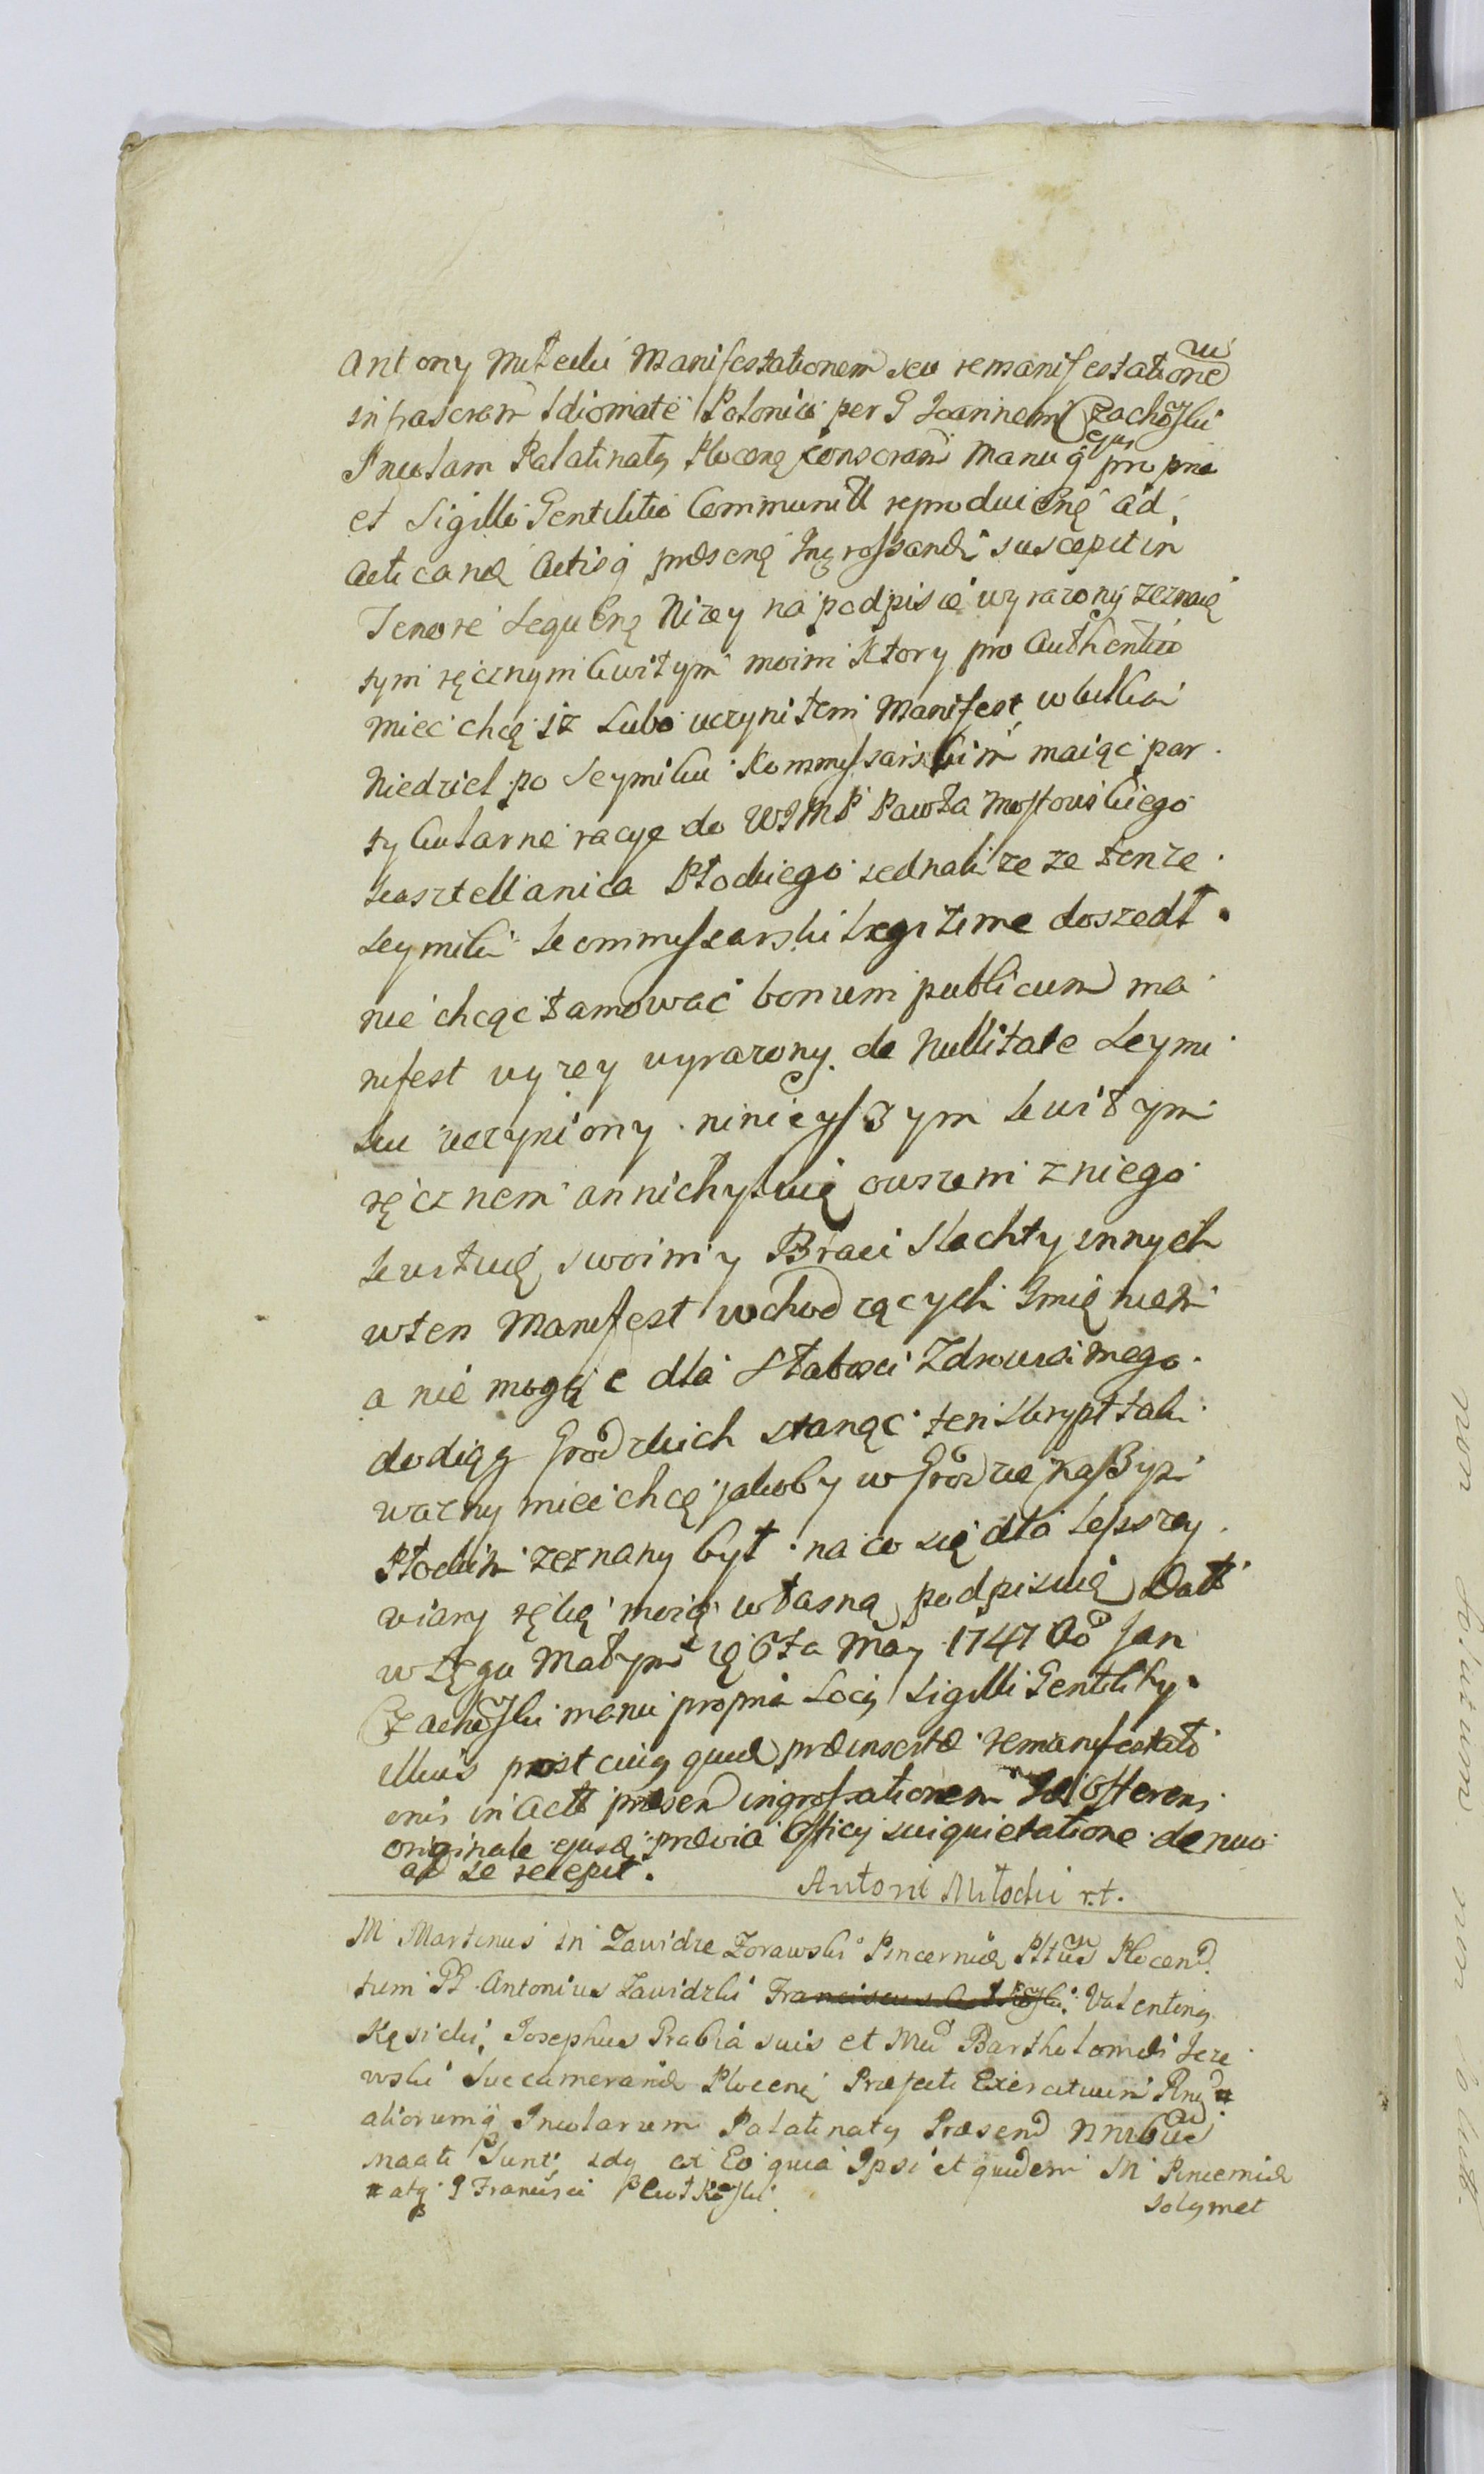 Antony Miłecki Manifestationem seu remanifestatione
infrascram Idiomate Polonico per G Joannem Czachoski
Incolam Palatinatq Plocenq conscram Manu q ejus propria
et Sigilli Gentilitio Communit reproducenq ad
Acticanã Actisq prãsenq Ingrossandũ suscepit in
Tenore Sequenq Nizey na podpisie wyrazony zeznaię
tym ręcznym kwitym moim Ktory pro Authentico
miec chcę iz Lubo uczyniłem Manifest w kilka
Niedziel po Seymiku Kommyssarskim maiąc par
tykularne racye do WJMP Pawła Mostowskiego
Kasztellanica Płockiego jednakze ze tenze
Seymik Kommyssarski Legitime doszedł
nie chcąc tamować bonum publicum ma
nifest wyzey wyrazony de Nullitate Seymi
ku uczyniony ninieyszym kwitym
ręcznem annichyluię owszem z niego
kwituię swoim y Braci Slachty innych
w ten Manifest wchodzących Imięniem
a nie mogąc dla Słabosci Zdrowia mego
do Xiąg Grodzkich stanąc ten Skrypt tak
wazny miec chcę jakoby w Grodzie
Płockim zeznany był na co się dla Lepszey
wiary ręką moią własną podpisuię Datt
w Łęgu Małym 6ta May 1747 Ao Jan
Czachoski manu propria Locq Sigilli Gentility
illius post cuiq quid prãinsertã remanifestati
onis in Actt prãsen ingrossationem Idẽ Offerens
originale ejusq prãvia Officy sui quietatione denuo
ad se recepit.
Antoni Miłocki r.t.
M Martinus in Zawidze Zorawski Pincernida Pltus Plocen
tum GG Antonius Zawidzki Franciscus Valentinq
Kęsicki, Josephus Prabia suis et Mci Bartholomei Jeze
wski Succameranid Plocenq Præfecti Exercituum Rnq #
aliorumq Incolarum Palatinatq Præsen Nnibus
naati Sunt sdq ex Eo quia Ipsi et quidem M Pincernida
# atq G Francisci Plutkoski
Solymet